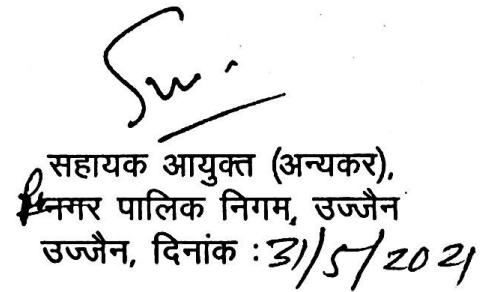 सहायक आयुक्त (अन्यकर),
नगर पालिक निगम, उज्जैन
उज्जैन, दिनांक : 31/5/2021